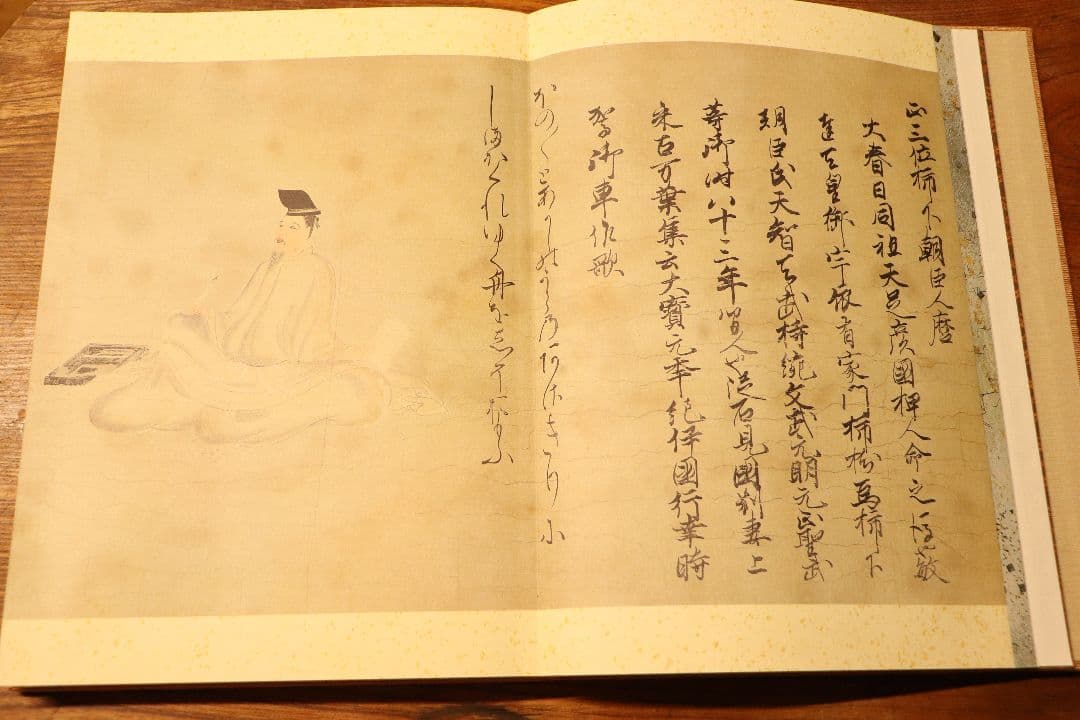 正三位柿下朝臣人麿
大春日同祖天足彦國押人命之後敏
達天皇御宇依有家門柿樹為柿下
朝臣氏天智天武持統文武元明元正聖武
等御時八十三年 人也従石見國別妻上
来古万葉集云大寶元年紀伊國行幸時
驾御車作歌
ほの〱とあかしのうらのあさきりに
しまかくれゆく舟をしそおもふ